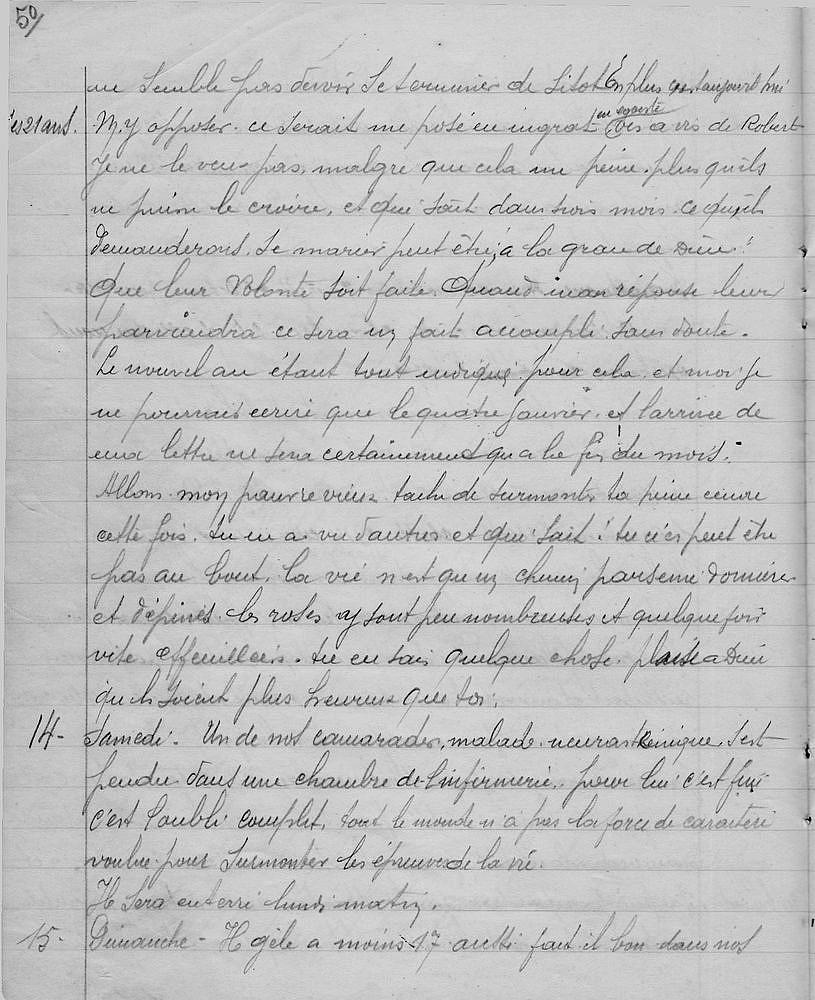 50/
ne semble pas devoir se terminer de sitot En plus c'est aujourd'hui
ses 21 ans. M'y opposer. ce serait me posé en ingrat en egoiste vis a vis de Robert
Je ne le veu pas, malgre que cela me peine plus qu'ils
ne puisse le croire, et qui sait dans trois mois ce qu'ils
demanderons. Se marier peut être, à la grande Dieu!
Que leur Volonté soit faite. Quand mon réponse leur
parviendra ce sera un fait accompli sans doute.
Le nouvel an étant tout indiqué pour cela, et moi je
ne pourrais ecrire que le quatre Janvier. et l'arrivée de
ma lettre ne sera certainement qu'a la fin du mois.
Allons mon pauvre vieux tache de surmonter ta peine encore
cette fois. tu en a vu d'autres et qui sait! tu n'es peut être
pas au bout. La vie n'est qu'un chemin parsemé d'ornières
et d'épines. les roses y sont peu nombreuses et quelque fois
vite effeuillées. tu en sais quelque chose. plaise a Dieu
qu'ils soient plus heureux que toi.
14- Samedi. Un de nos camarades, malade neurasténique s'est
pendu dans une chambre de l'infirmerie. pour lui c'est fini
c'est l'oubli complet, tout le monde n'a pas la force de caractère
voulue pour surmonter les épreuves de la vie.
Il sera enterré lundi matin.
15- Dimanche - Il gèle a moins 17 aussi fait il bon dans nos